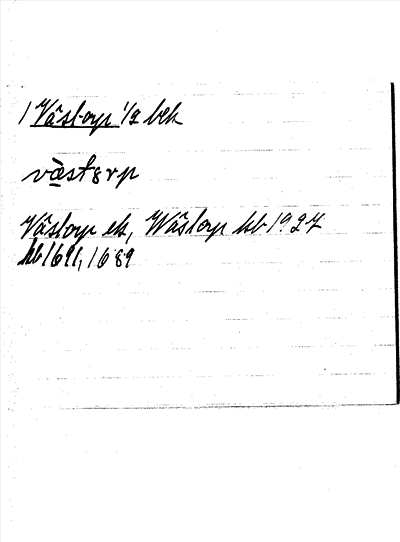 1 Västorp 1/2 bek
vä̀stɑrp
Västorp ek, Wästorp kb 1927
kb 1691, 1689